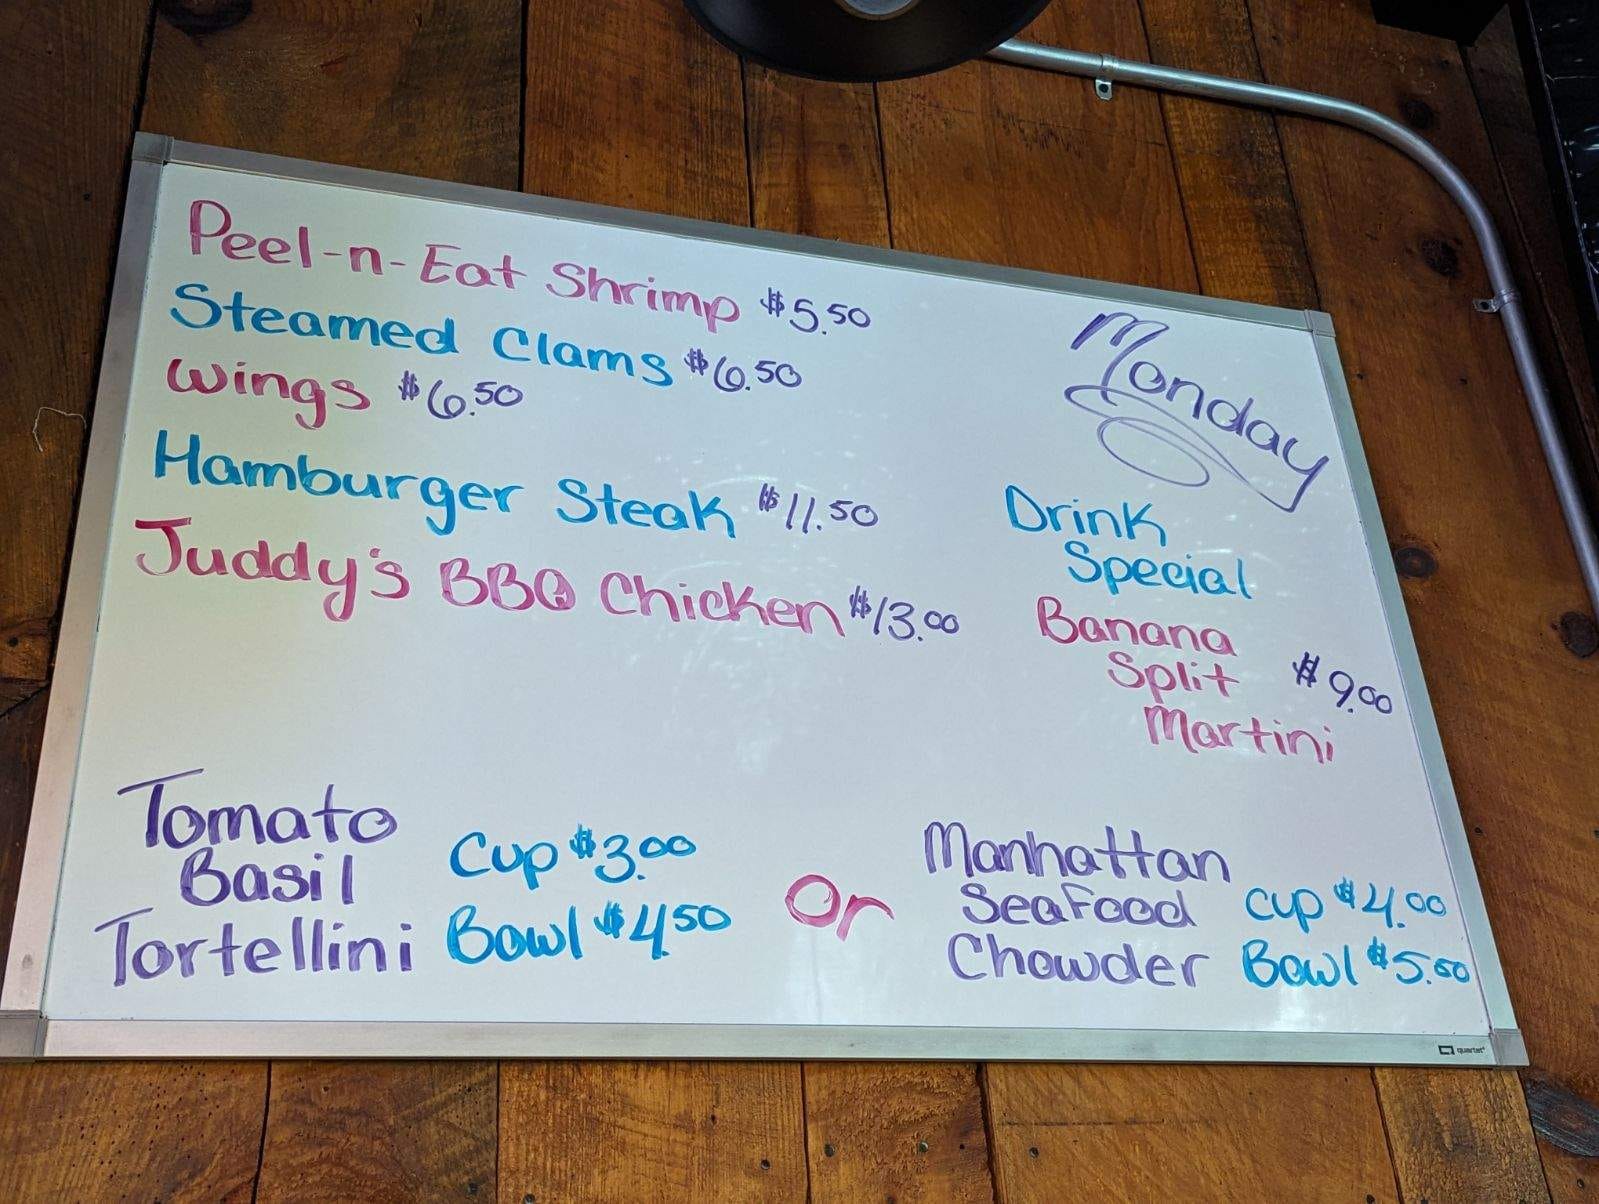 Peel-n-Eat Shrimp $5.50
Steamed Clams $6.50
Wings $6.50
Hamburger Steak $11.50
Juddy's BBQ Chicken $13.00
Monday
Drink
Special
Banana
Split $9.00
Martini
Tomato
Basil
Tortellini
Cup $3.00
Bowl $4.50
Or
Manhattan
Seafood
Chowder
Cup $4.00
Bowl $5.50
quartet